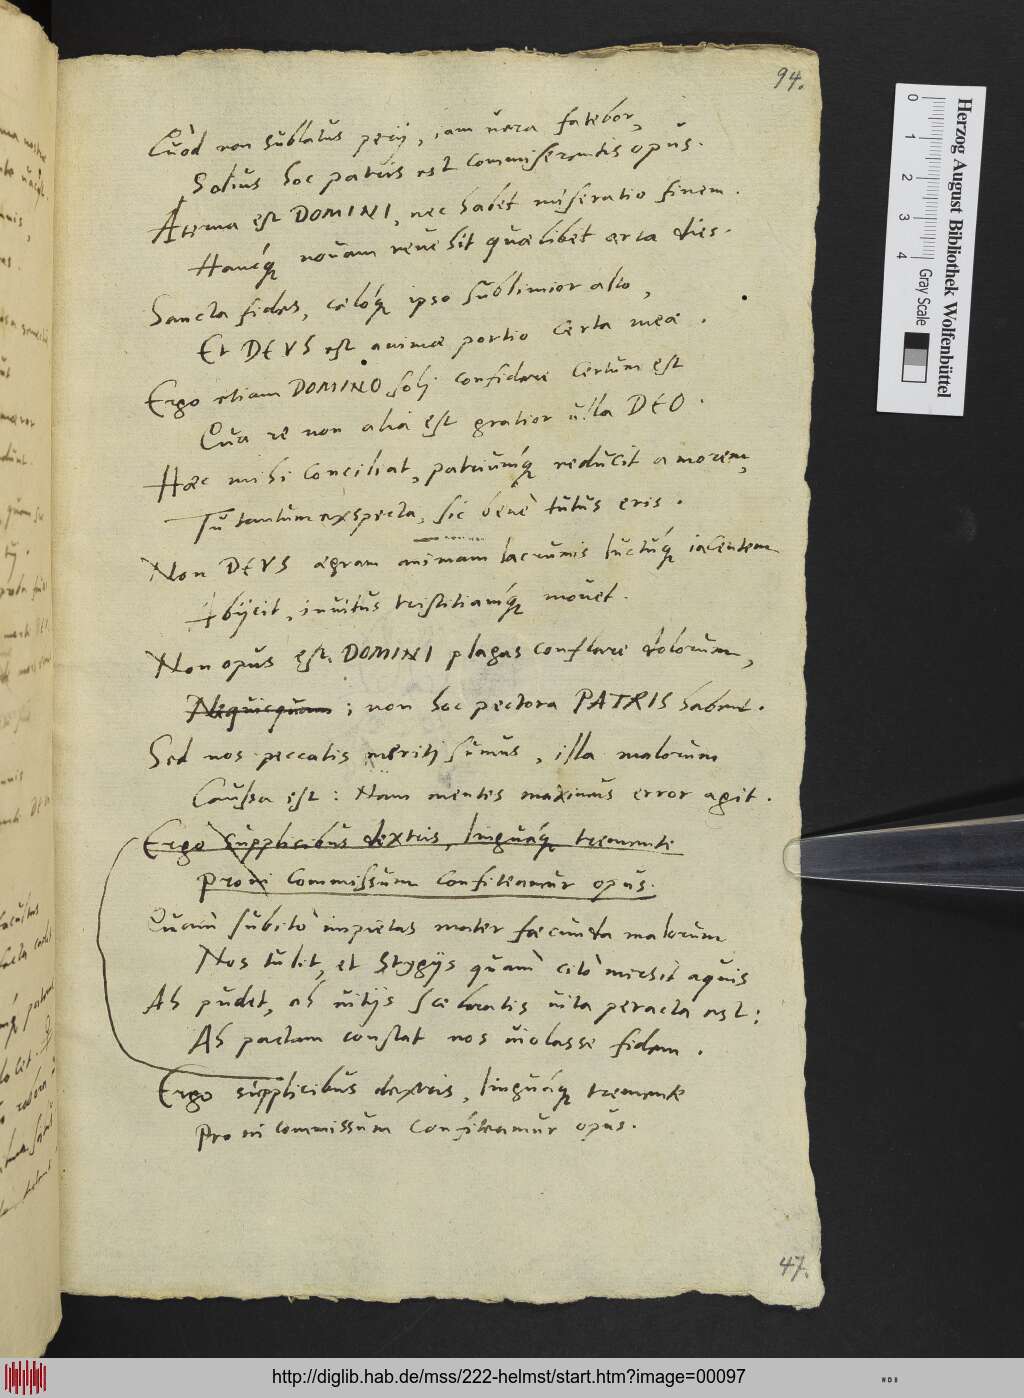 94.
Quòd non sublatus perij, iam vera fatebor,
Solius hoc patris est commiserentis opus.
Aeterna est DOMINI, nec habet miseratio finem.
Hancq́ novam revehit quaelibet orta dies.
Sancta fides, caelóq́ ipso sublimior alto,
Et DEVS est animae portio certa meae.
Ergo etiam DOMINO soli confidere certum est
Qua re non alia est gratior ulla DEO.
Haec mihi conciliat, patriumq́ reducit amorem,
Tu tantum exspecta, sic benè tutus eris.
Non DEVS aegram animam lacrumis luctúq́ iacentem
Abijcit, invitus tristitiamq́ movet.
Non opus est DOMINI plagas conflare dolorum,
Nequicquam; non hoc pectora PATRIS habent.
Sed nos peccatis meriti sumus, illa malorum
Caussa est: Nam mentes maximus error agit.
Ergo supplicibus dextris, linguáq́ tremente
Pro ni commissum confiteamur opus.
Quam subitò impietas mater faecunda malorum
Nos tulit, et Stygijs quam citò mersit aquis
Ah pudet, ah vitijs sceleratis vita peracta est:
Ah pactam constat nos violasse fidem.
Ergo supplicibus dextris, linguáq́ tremente
Pro ni commissum confiteamur opus.
47.
Herzog August Bibliothek Wolfenbüttel
0 1 2 3 4 Gray Scale
http://diglib.hab.de/mss/222-helmst/start.htm?image=00097